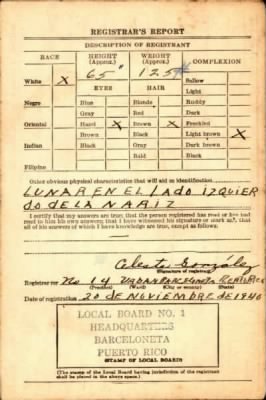 REGISTRAR'S REPORT
DESCRIPTION OF REGISTRANT
RACE HEIGHT (Approx.) WEIGHT (Approx.) COMPLEXION
White X 65" 125 Sallow
EYES HAIR Light
Negro Blue Blonde Ruddy
Gray Red Dark
Oriental Hazel X Brown X Freckled
Brown Black Light brown X
Indian Black Gray Dark brown
Bald Black
Filipino
Other obvious physical characteristics that will aid in identification
LUNAR EN EL LADO IZQUIER
DO DE LA NARIZ
I certify that my answers are true; that the person registered has read or has had
read to him his own answers; that I have witnessed his signature or mark and that
all of his answers of which I have knowledge are true, except as follows:
Celeste González
(Signature of registrar)
Registrar for No 14 URBANA BARCELONETA
(Precinct) (Ward) (City or county) (State)
Date of registration 20 DE NOVIEMBRE DE 1940
LOCAL BOARD NO. 1
HEADQUARTERS
BARCELONETA
PUERTO RICO
(STAMP OF LOCAL BOARD)
(The stamp of the Local Board having jurisdiction of the registrant
shall be placed in the above space.)